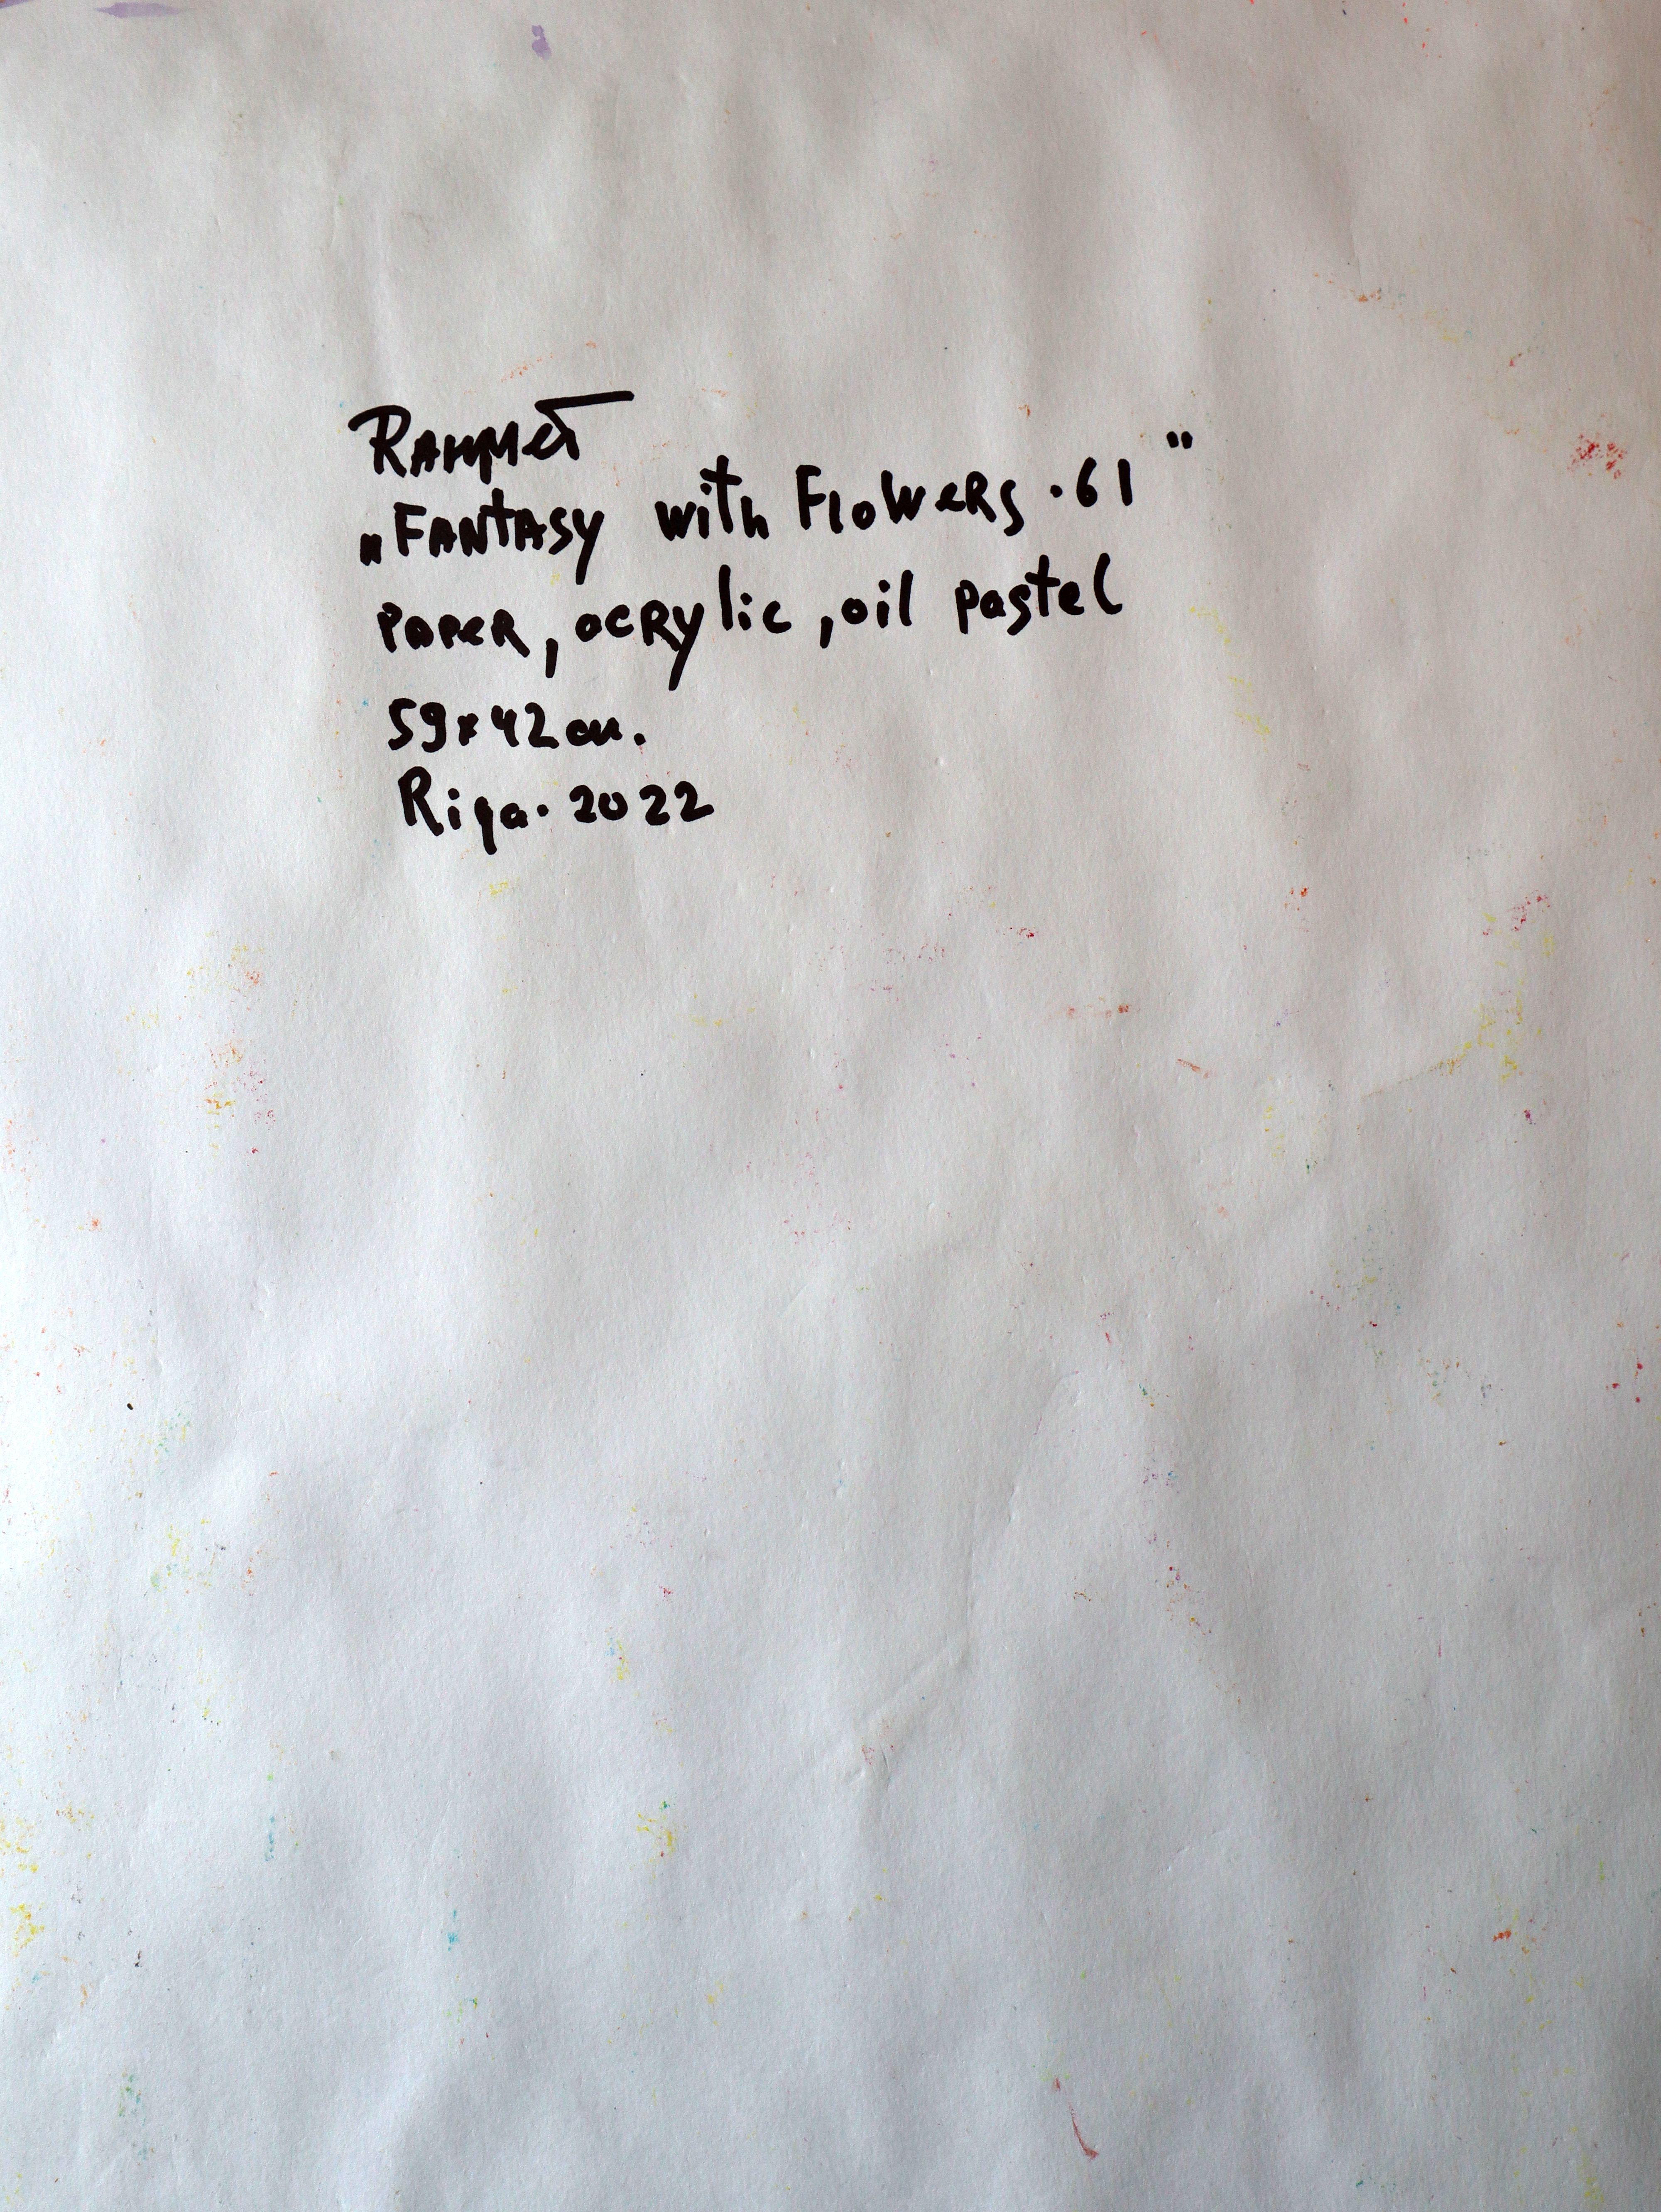 Rahmet
„Fantasy with Flowers · 61"
paper, acrylic, oil pastel
59x42cm.
Riga · 2022